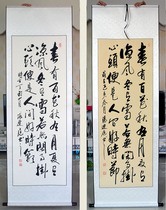 春有百花秋有月夏有
涼風冬有雪若無閑事掛
心頭便是人間好時節
春有百花秋有月夏有
涼風冬有雪若無閑事掛
心頭便是人間好時節